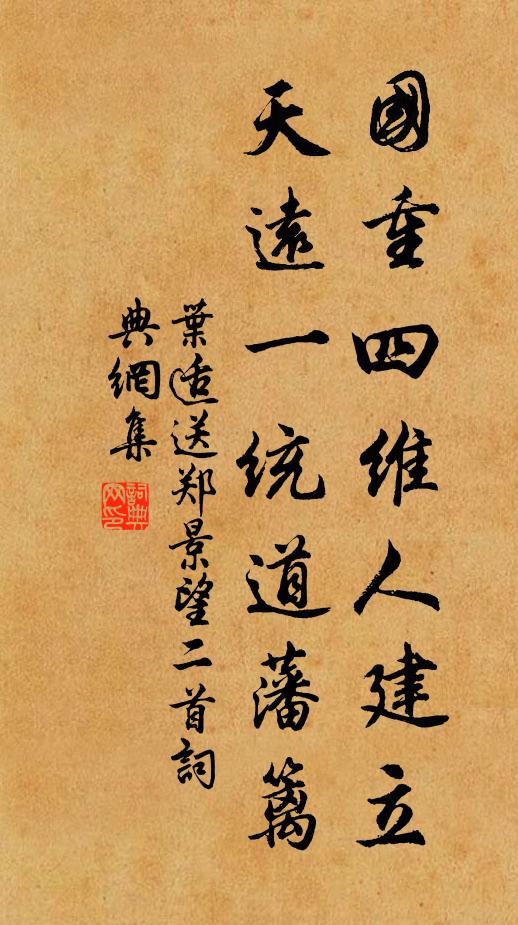 國重四維人建立
天遠一統道藩籬
葉适送郑景望二首詞
典網集
詞典網印